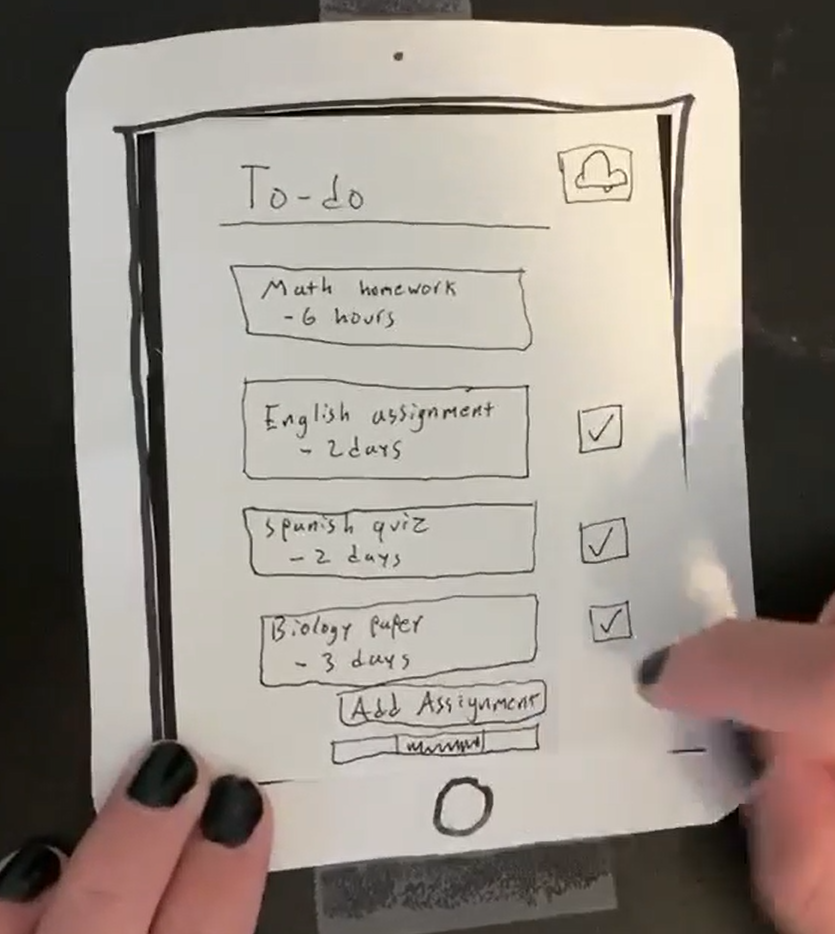 To-do
Math homework
- 6 hours
English assignment
- 2 days
Spanish quiz
- 2 days
Biology paper
- 3 days
Add Assignment